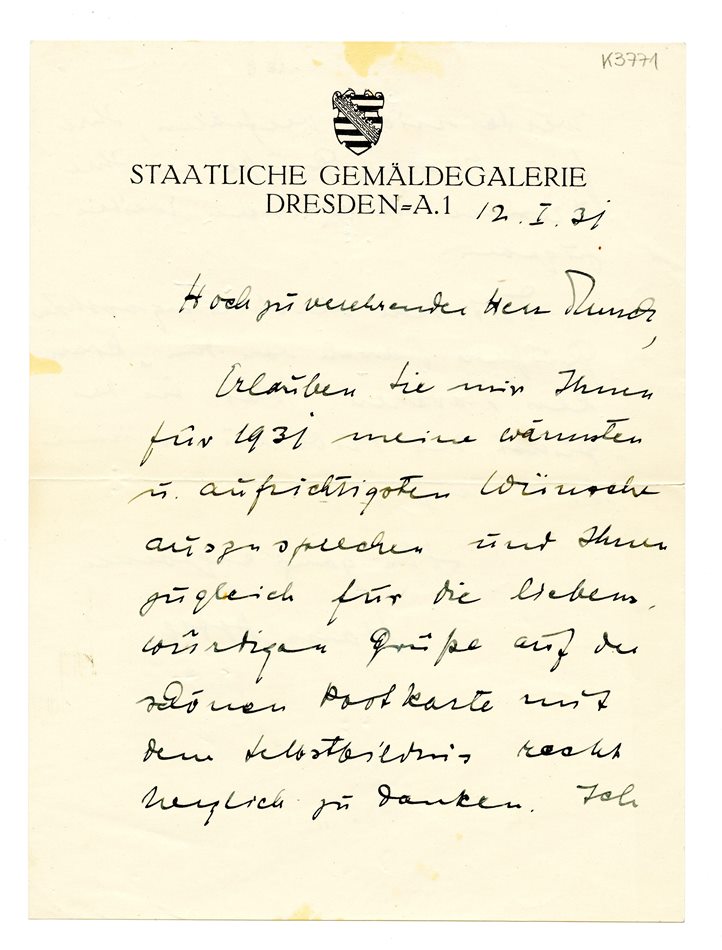 K3771
STAATLICHE GEMÄLDEGALERIE
DRESDEN=A.1 12. I. 31
Hochzuverehrender Herr Munch,
Erlauben Sie mir Ihnen
für 1931 meine wärmsten
u. aufrichtigsten Wünsche
auszusprechen und Ihnen
zugleich für die liebens,
würdigen Grüße auf der
schönen Postkarte mit
dem Selbstbildnis recht
herzlich zu danken. Ich